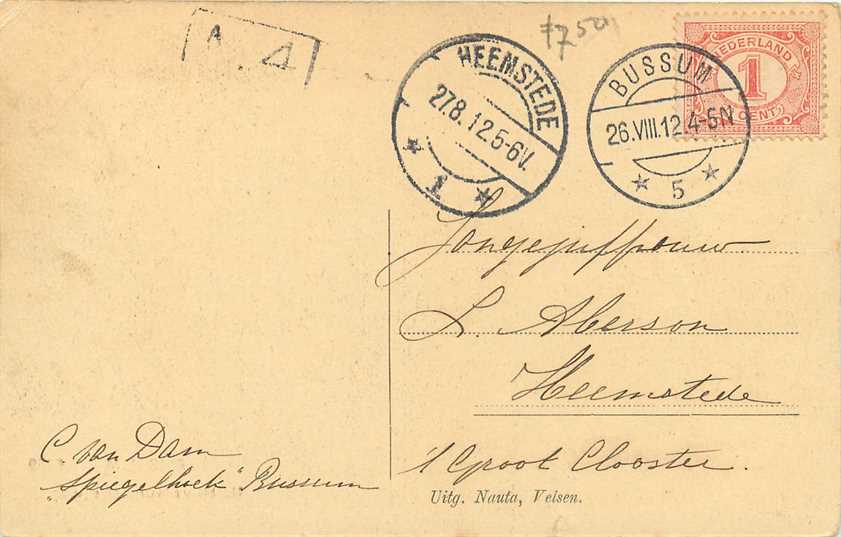 A. 4
f7 50
NEDERLAND
1
CENT
HEEMSTEDE
27.8.12.5-6V.
1
BUSSUM
26.VIII.12.4-5N
5
Jongejuffrouw
L. Aberson
Heemstede
't Groot Clooster.
C. van Dam
"Spiegelhoek" Bussum
Uitg. Nauta, Velsen.